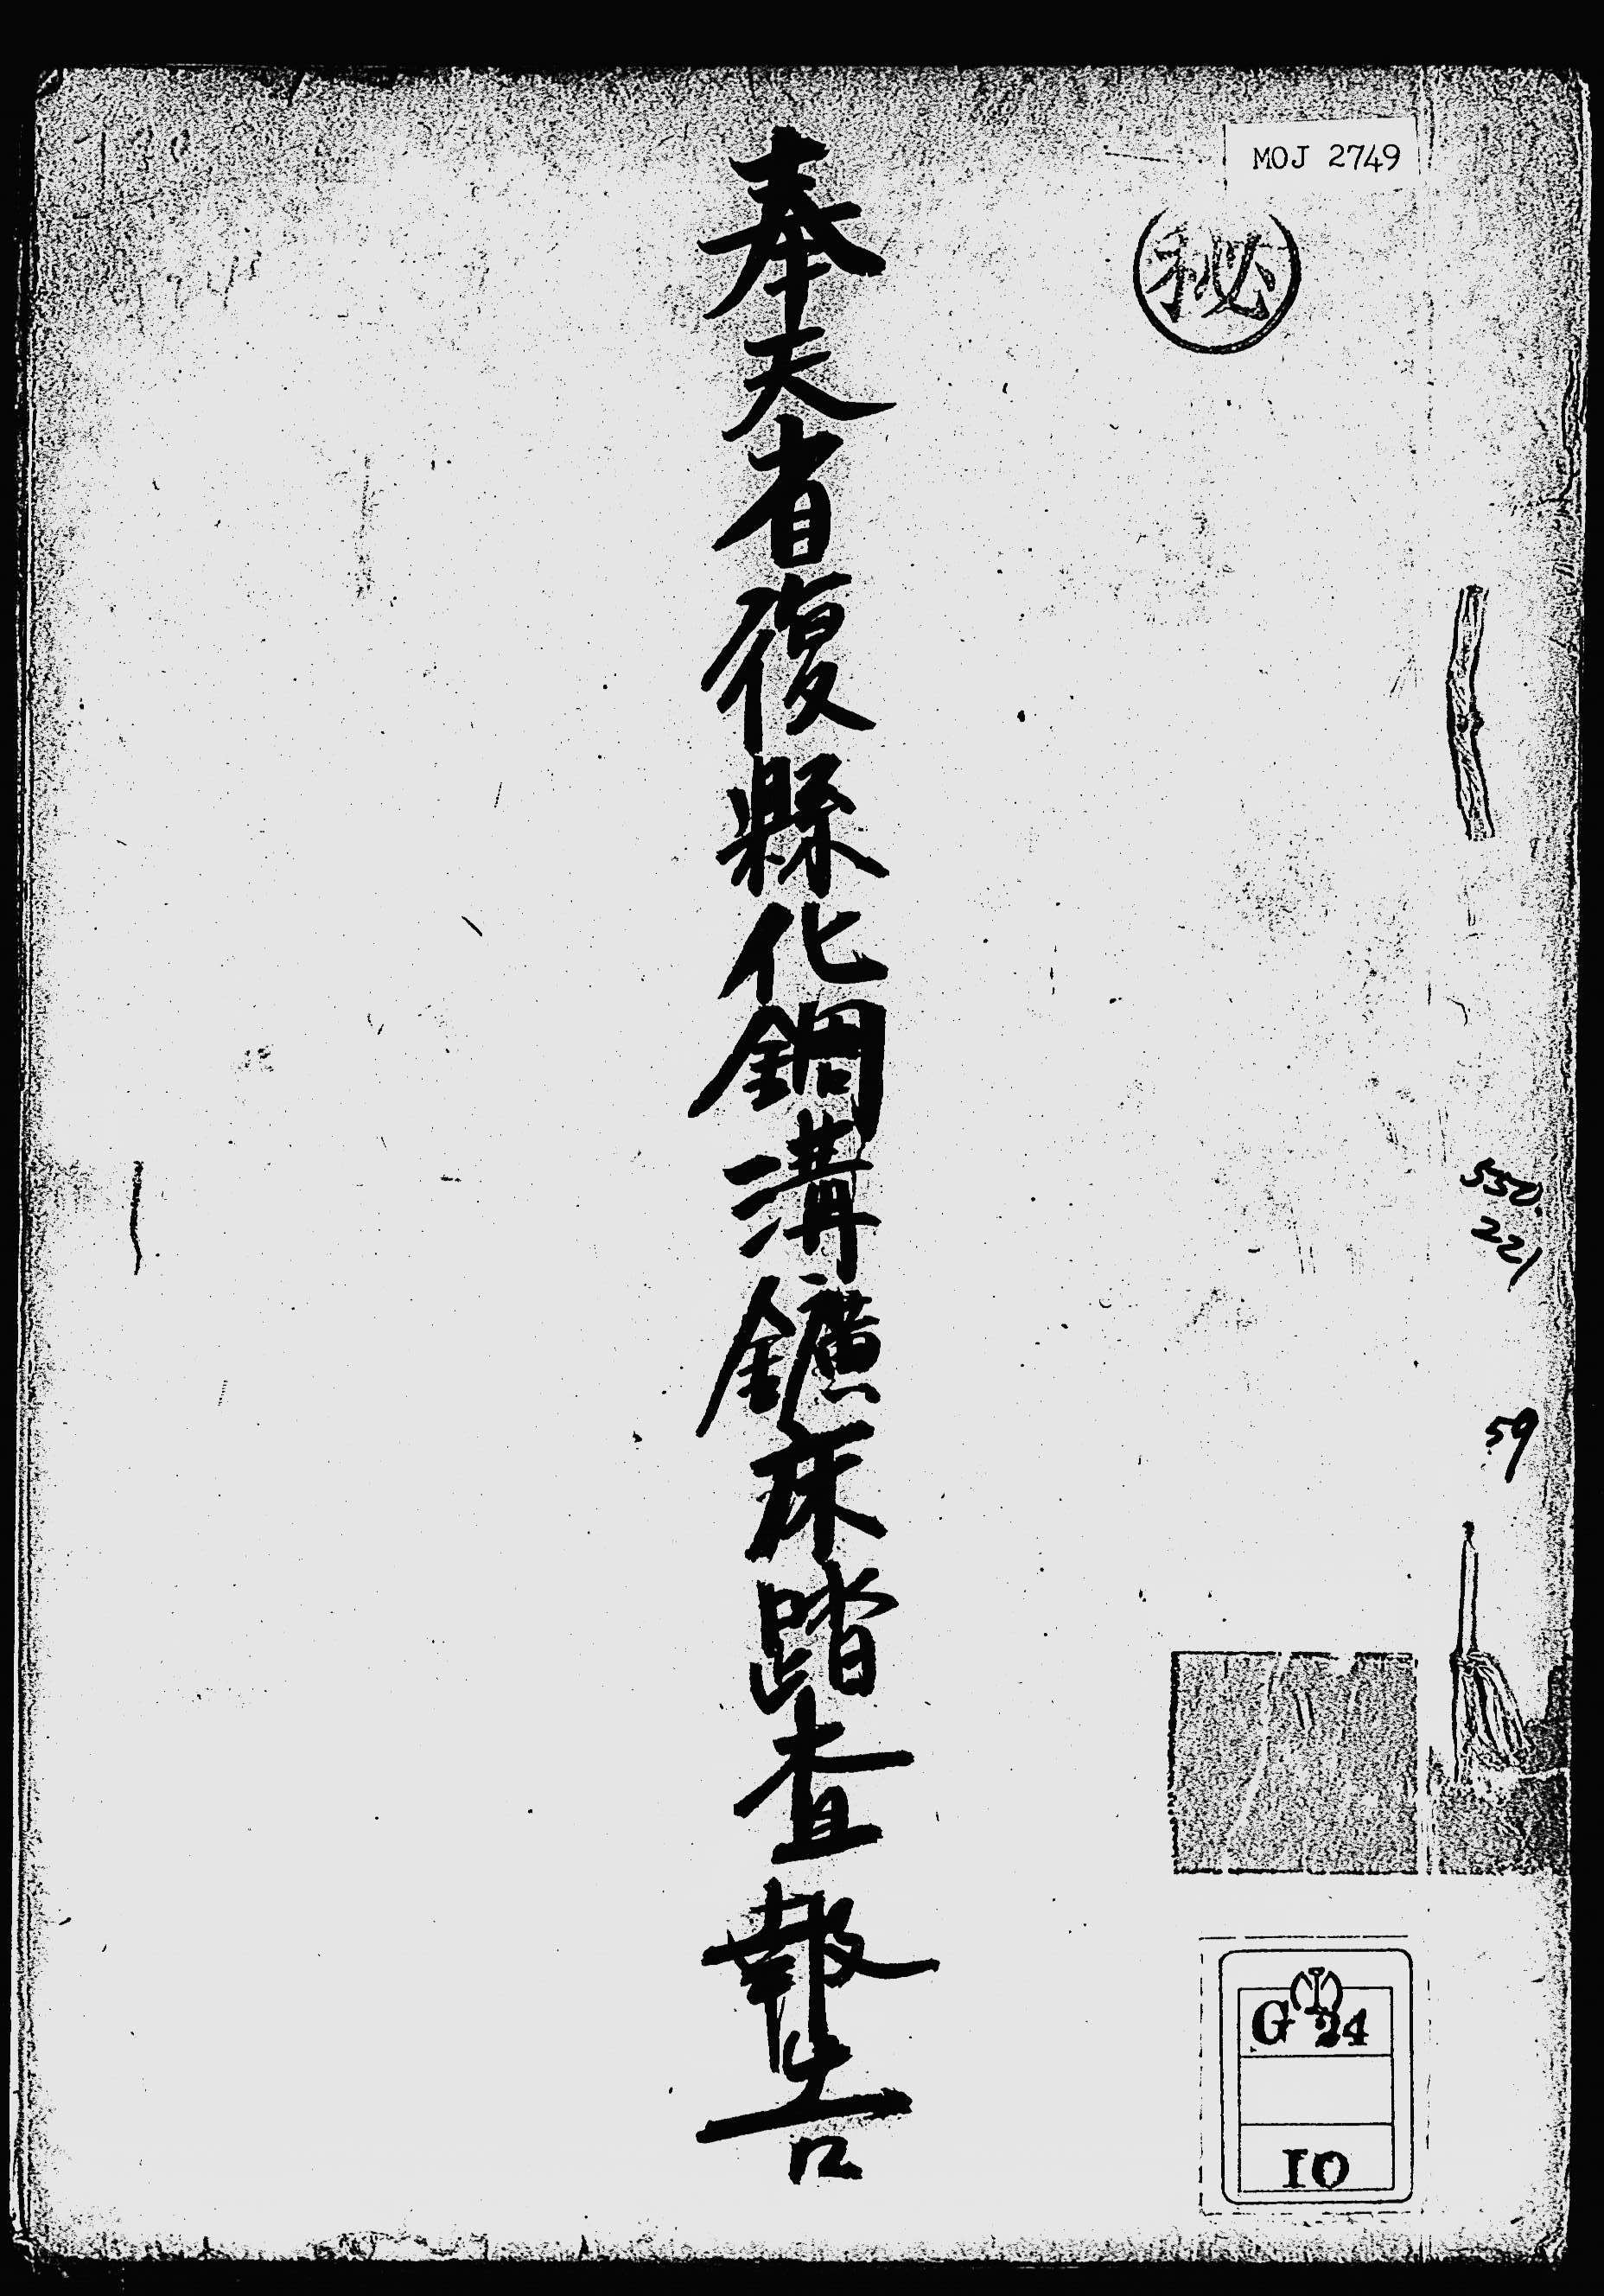 MOJ 2749
秘
奉天省復縣化銅溝鑛床踏査報告
550.
221
59
G 24
10